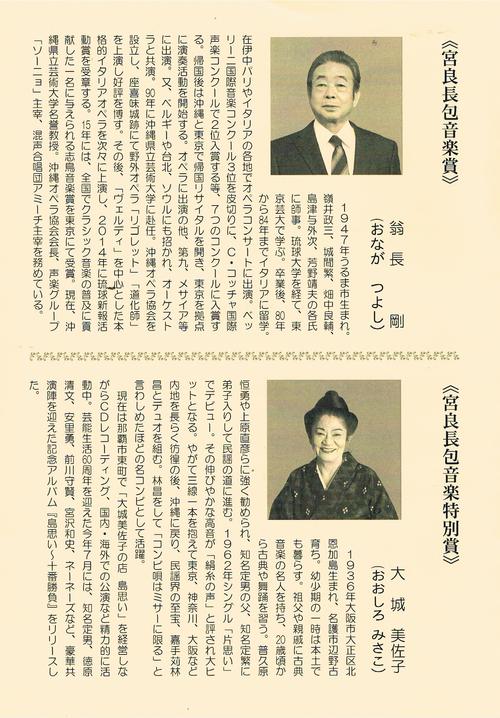 《宮良長包音楽賞》
翁長 剛
(おなが つよし)
1947年うるま市生まれ。
嶺井政三、城間繁、畑中良輔、
島津与外次、芳野靖夫の各氏
に師事。琉球大学を経て、東
京芸大で学ぶ。卒業後、80年
から84年までイタリアに留学。
在伊中パリやイタリアの各地でオペラコンサートに出演。ベッ
リーニ国際音楽コンクール3位を皮切りに、C・コッチャ国際
声楽コンクールで2位入賞する等、7つのコンクールに入賞す
る。帰国後は沖縄と東京で帰国リサイタルを開き、東京を拠点
に演奏活動を開始する。オペラに出演の他、第九、メサイア等
に出演。又、ベルギーや台北、ソウルにも招かれ、オーケスト
ラと共演。90年に沖縄県立芸術大学に赴任。沖縄オペラ協会を
設立し、座喜味城跡にて野外オペラ「リゴレット」「道化師」
を上演し好評を博す。その後、「ヴェルディ」を中心とした本
格的イタリアオペラを次々に上演し、2014年に琉球新報活
動賞を受章する。15年には、全国でクラシック音楽の普及に貢
献した一名に与えられる志鳥音楽賞を東京にて受賞。現在、沖
縄県立芸術大学名誉教授。沖縄オペラ協会会長、声楽グループ
「ソーニョ」主宰、混声合唱団アミーチ主宰を務めている。
《宮良長包音楽特別賞》
大城 美佐子
(おおしろ みさこ)
1936年大阪市大正区北
恩加島生まれ、名護市辺野古
育ち。幼少期の一時は本土で
も暮らす。祖父や親戚に古典
音楽の名人を持ち、20歳頃か
ら古典や舞踊を習う。普久原
恒勇や上原直彦らに強く勧められ、知名定男の父、知名定繁に
弟子入りして民謡の道に進む。1962年シングル「片思い」
でデビュー。その伸びやかな高音が「絹糸の声」と評され大ヒ
ットとなる。やがて三線一本を抱えて東京、神奈川、大阪など
内地を長らく彷徨の後、沖縄に戻り、民謡界の至宝、嘉手苅林
昌とデュオを組む。林昌をして「コンビ唄はミサーに限る」と
言わしめたほどの名コンビとして活躍。
現在は那覇市東町で「大城美佐子の店 島思い」を経営しな
がらCDレコーディング、国内・海外での公演など精力的に活
動中。芸能生活60周年を迎えた今年7月には、知名定男、徳原
清文、安里勇、前川守賢、宮沢和史、ネーネーズなど、豪華共
演陣を迎えた記念アルバム『島思い〜十番勝負』をリリースし
た。